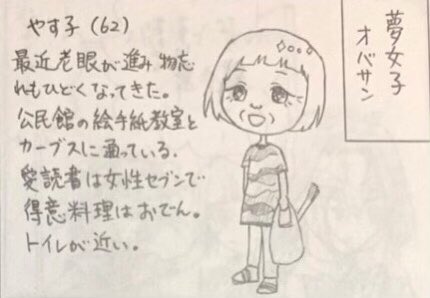 夢女子
オバサン
やす子(62)
最近老眼が進み物忘
れもひどくなってきた。
公民館の絵手紙教室と
カーブスに通っている。
愛読者は女性セブンで
得意料理はおでん。
トイレが近い。